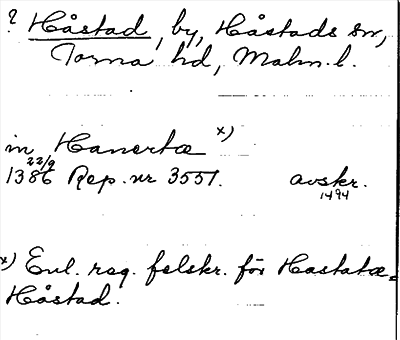 ? Håstad, by, Håstads sn,
Torna hd, Malm. l.
in Hanertæ x)
22/9
1386 Rep. nr 3551. avskr.
1494
x) Enl. reg. felskr. för Hastatæ=
Håstad.